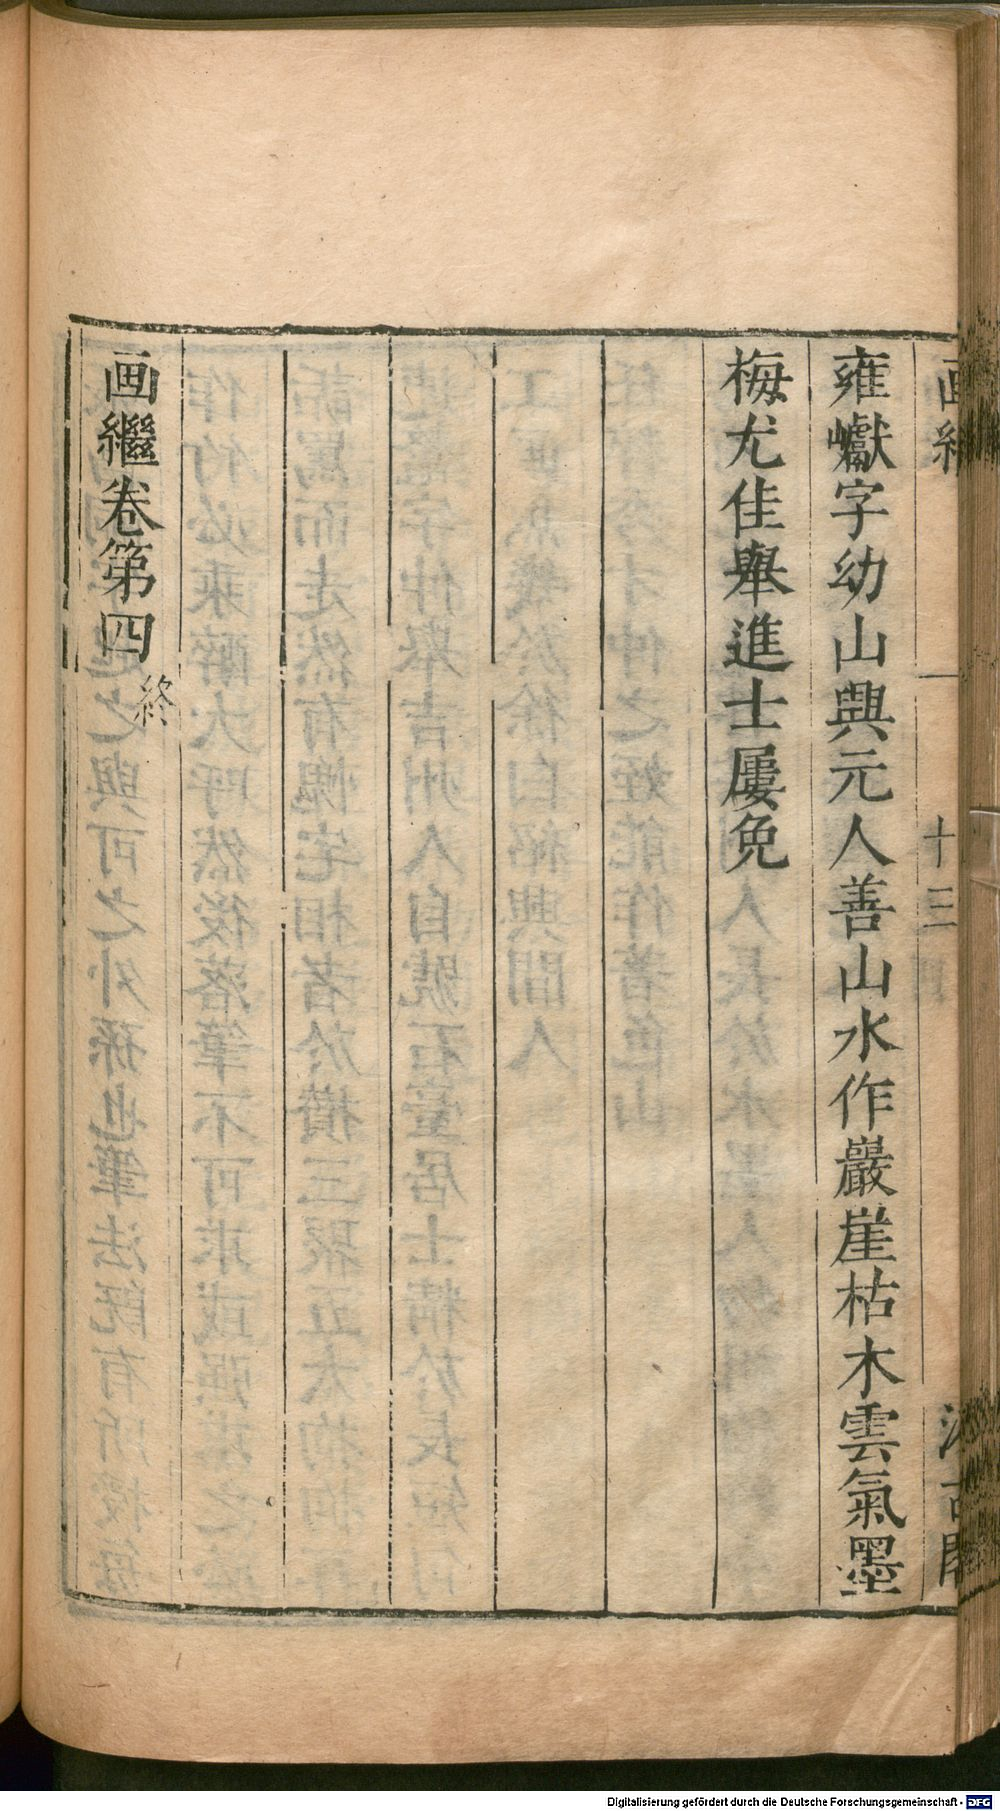 十三
雍巘字幼山興元人善山水作巖崖枯木雲氣墨
梅尤佳舉進士屢免
画繼卷第四
終
Digitalisierung gefördert durch die Deutsche Forschungsgemeinschaft - DFG